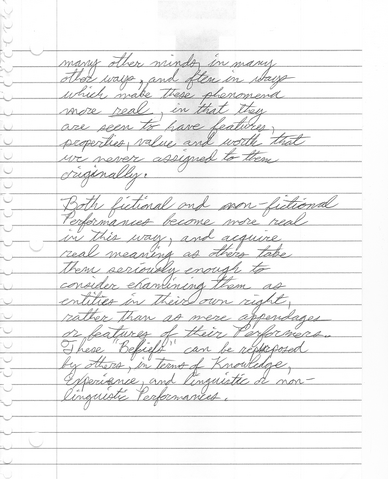 many other minds, in many
other ways, and often in ways
which make these phenomena
more real, in that they
are seen to have features,
properties, value and worth that
we never assigned to them
originally.
Both fictional and non-fictional
Performances become more real
in this way, and acquire
real meaning as others take
them seriously enough to
consider examining them as
entities in their own right,
rather than as mere appendages
or features of their Performers.
These "Beliefs" can be repurposed
by others, in terms of Knowledge,
Experience, and linguistic or non-
linguistic Performances.